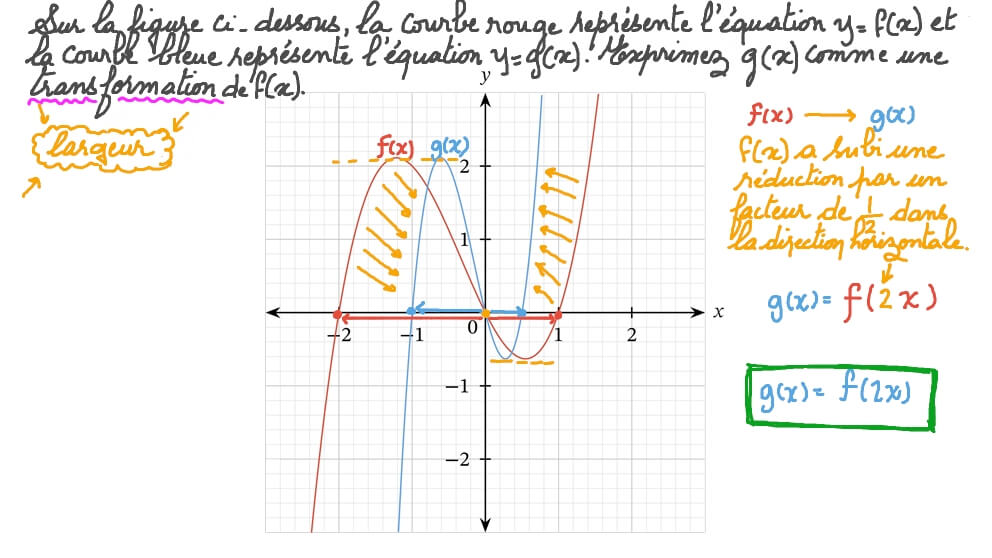 Sur la figure ci-dessous, la courbe rouge représente l'équation y = f(x) et
la courbe bleue représente l'équation y = g(x). Exprimez g(x) comme une
transformation de f(x).
largeur
f(x) → g(x)
f(x) a subi une
réduction par un
facteur de 1/2 dans
la direction horizontale.
g(x) = f(2x)
g(x) = f(2x)
y
f(x) g(x)
2
1
x
−2 −1 0 1 2
−1
−2